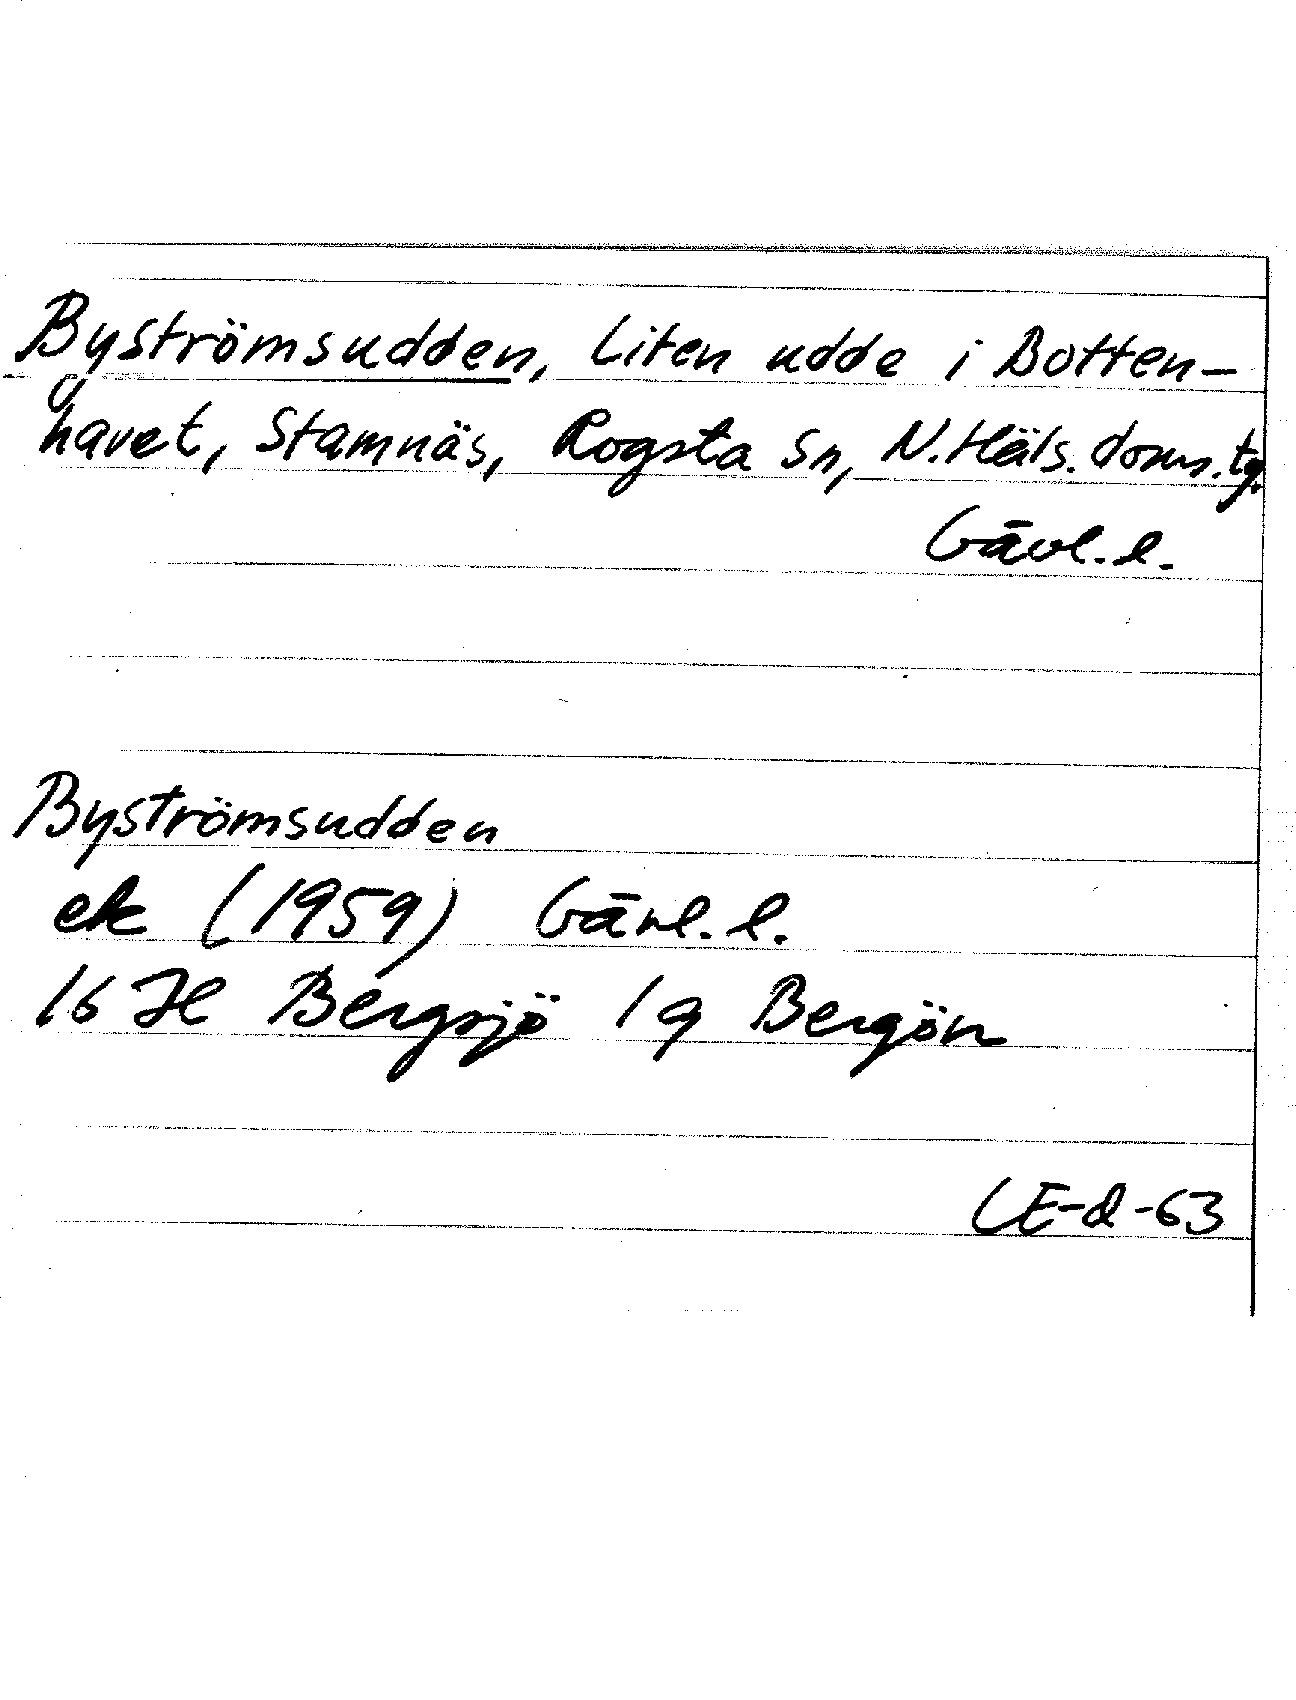 Byströmsudden, liten udde i Botten-
havet, Stamnäs, Rogsta Sn, N. Häls. doms. tg.
Gävl. l.
Byströmsudden
ek (1959) Gävl. l.
16 H Bergsjö 1 g Bergön
CE-d-63